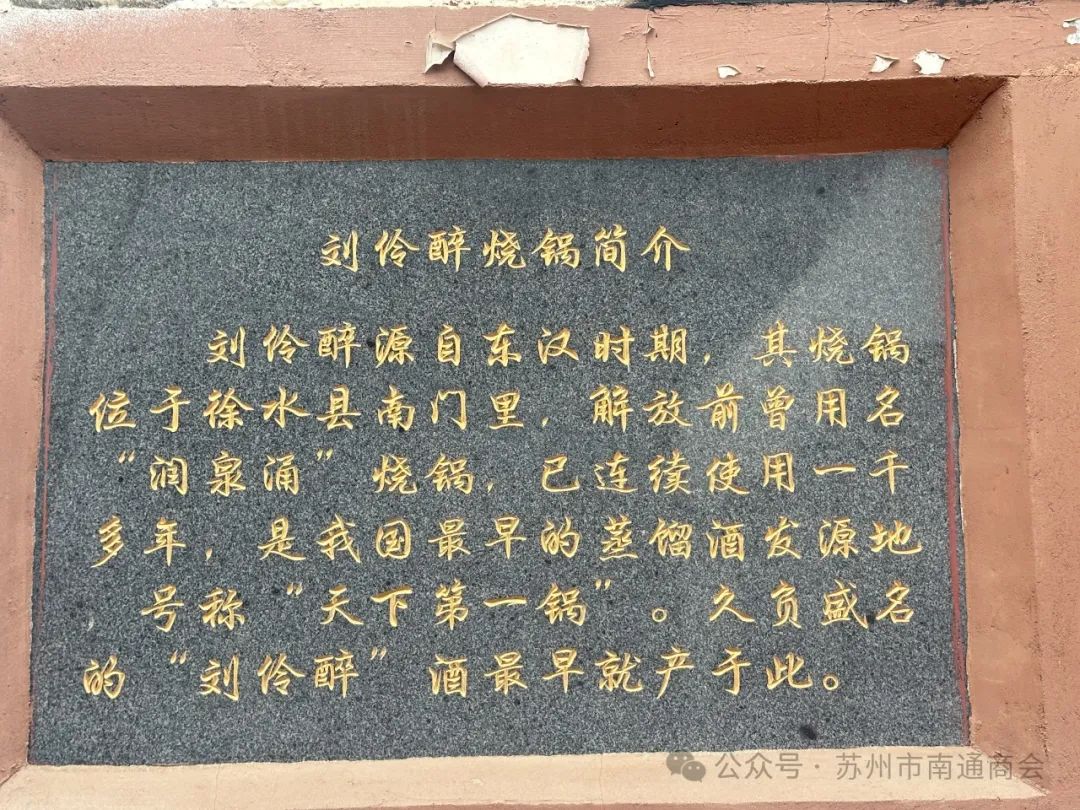 刘伶醉烧锅简介
刘伶醉源自东汉时期，其烧锅
位于徐水县南门里，解放前曾用名
“润泉涌”烧锅，已连续使用一千
多年，是我国最早的蒸馏酒发源地
号称“天下第一锅”。久负盛名
的“刘伶醉”酒最早就产于此。
公众号·苏州市南通商会